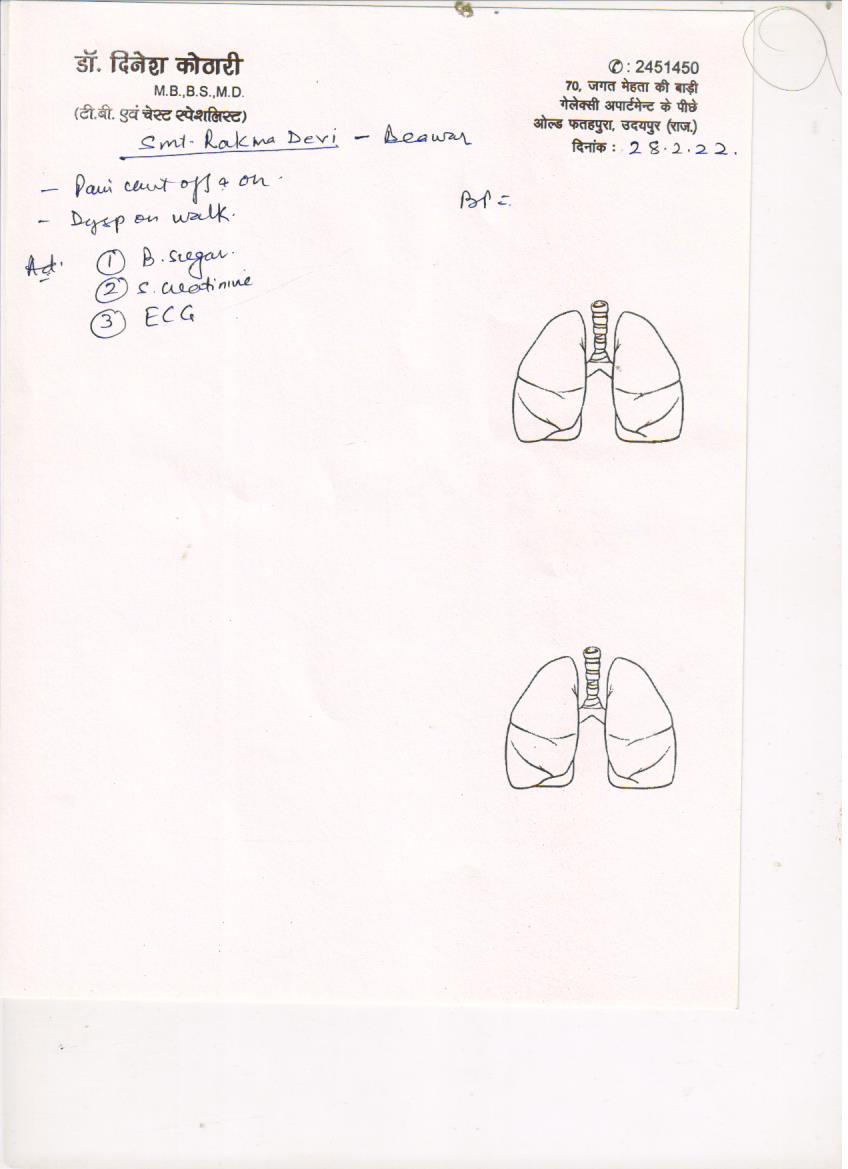 डॉ. दिनेश कोठारी
M.B.,B.S.,M.D.
(टी.बी. एवं चेस्ट स्पेशलिस्ट)
✆ : 2451450
70, जगत मेहता की बाड़ी
गेलेक्सी अपार्टमेन्ट के पीछे
ओल्ड फतहपुरा, उदयपुर (राज.)
दिनांक : 28.2.22.
Smt. Rakma Devi - Beawar
- Pain off & on.
- Dysp on walk.
BP =
Ad.
① B. sugar.
② S. creatinine
③ ECG